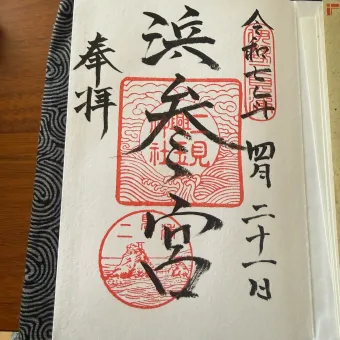 令和七年 四月 二十一日
浜参宮
奉拝
二見
興玉
神社